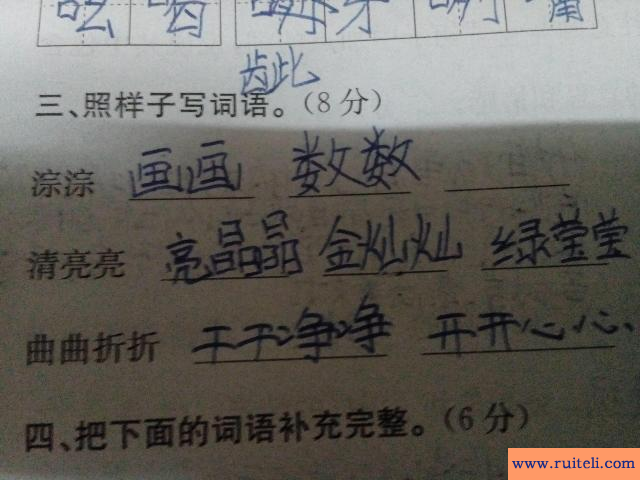 齿此
三、照样子写词语。(8分)
淙淙 画画 数数
清亮亮 亮晶晶 金灿灿 绿莹莹
曲曲折折 干干净净 开开心心
四、把下面的词语补充完整。(6分)
www.ruiteli.com